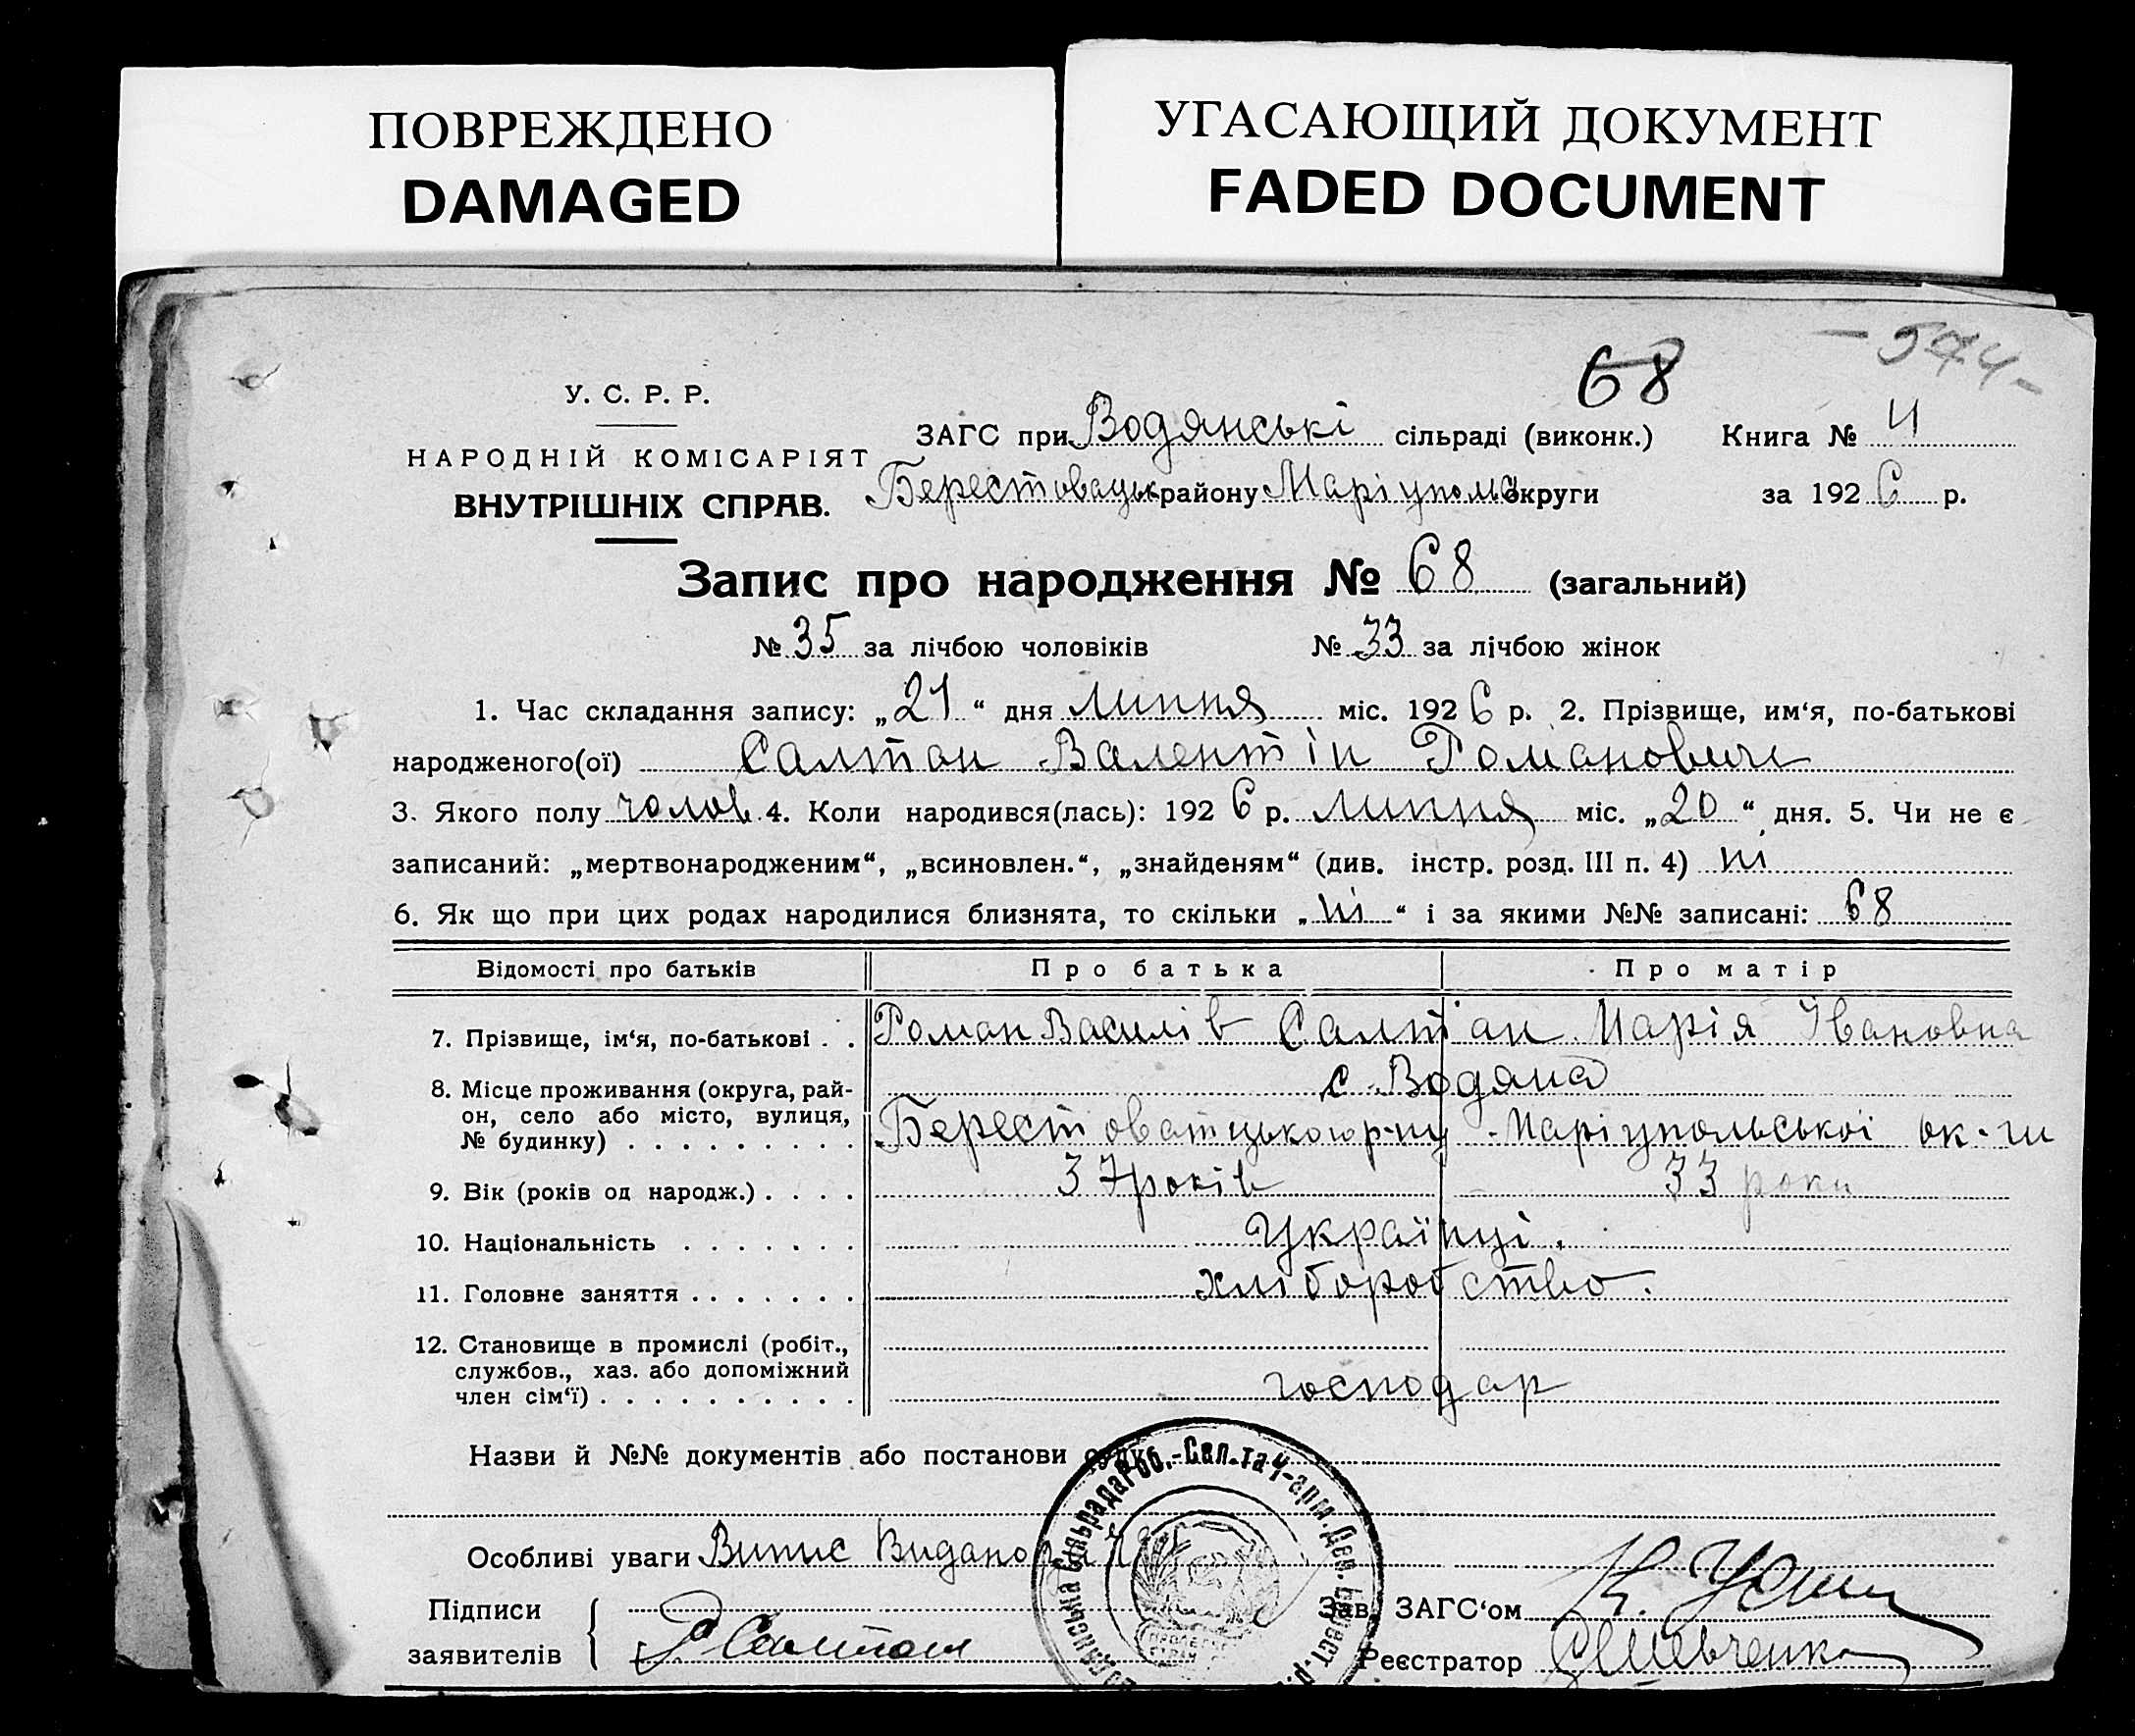 ПОВРЕЖДЕНО
DAMAGED
УГАСАЮЩИЙ ДОКУМЕНТ
FADED DOCUMENT
- 544 -
68
У. С. Р. Р.
НАРОДНІЙ КОМІСАРІЯТ
ВНУТРІШНІХ СПРАВ.
ЗАГС при Водянські сільраді (виконк.) Книга № 4
Берестовецьк району Маріупольс округи за 1926 р.
Запис про народження № 68 (загальний)
№ 35 за лічбою чоловіків № 33 за лічбою жінок
1. Час складання запису: „21“ дня липня міс. 1926 р. 2. Прізвище, им‘я, по-батькові
народженого(ої) Салтан Валентін Романович
3. Якого полу чолов. 4. Коли народився(лась): 1926 р. липня міс. „20“ дня. 5. Чи не є
записаний: „мертвонародженим“, „всиновлен.“, „знайденям“ (див. інстр. розд. III п. 4) ні
6. Як що при цих родах народилися близнята, то скільки „ні“ і за якими №№ записані: 68
Відомості про батьків Про батька Про матір
7. Прізвище, ім‘я, по-батькові . . Роман Василів Салтан Марія Івановна
8. Місце проживання (округа, рай- с. Водяна
он, село або місто, вулиця,
№ будинку) . . . . . . . . . Берестоватцького р-ну Маріупольської ок-ги
9. Вік (років од народж.) . . . . 37 років 33 роки
10. Національність . . . . . . . Українці.
11. Головне заняття . . . . . . . хліборобство.
12. Становище в промислі (робіт.,
службов., хаз. або допоміжний
член сім‘ї) . . . . . . . . . . господар
Назви й №№ документів або постанови суду
Особливі уваги Випис Видано
Водянська Сільрада Роб.-Сел. та Ч-арм. Деп. Берест. р.
Підписи
заявителів
Р Салтан
Зав. ЗАГС‘ом К.
Реєстратор Шевченко